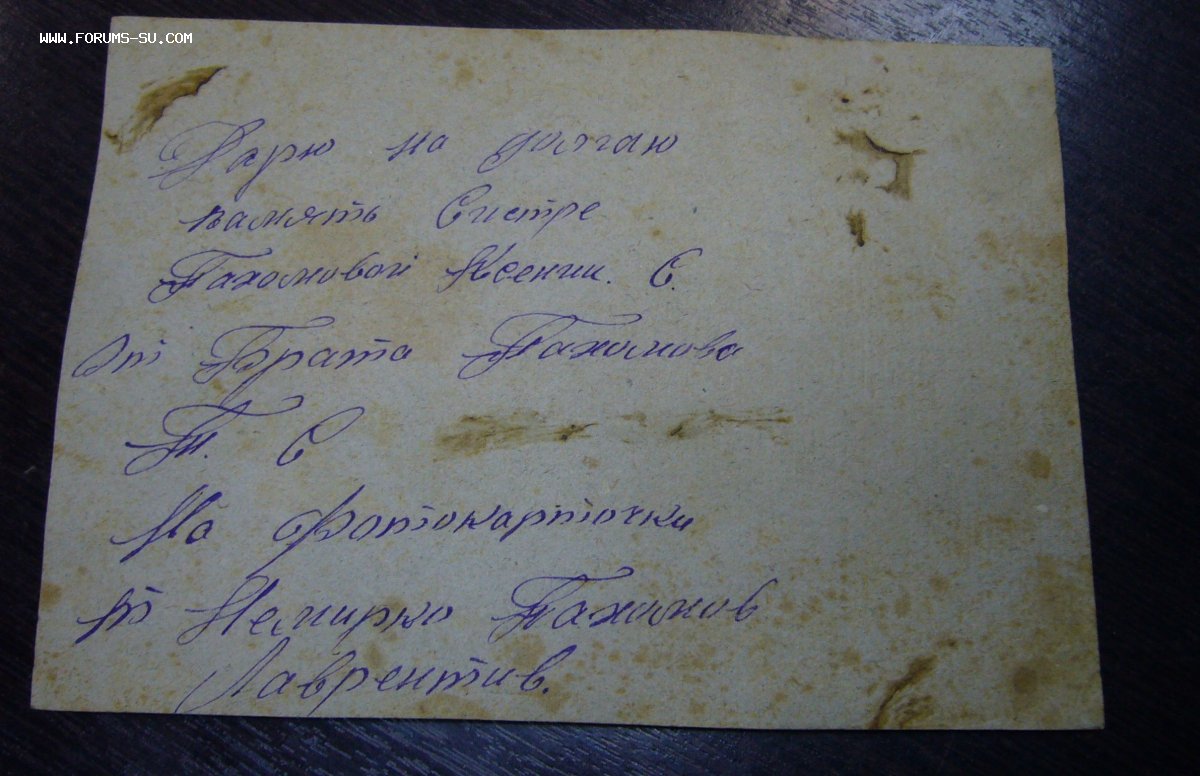 WWW.FORUMS-SU.COM
Дарю на долгаю
память Систре
Пахомовой Ксении. С.
От Брата Пахомова
П. С
На фотокарточки
т Немирко Пахомов
Лаврентив.